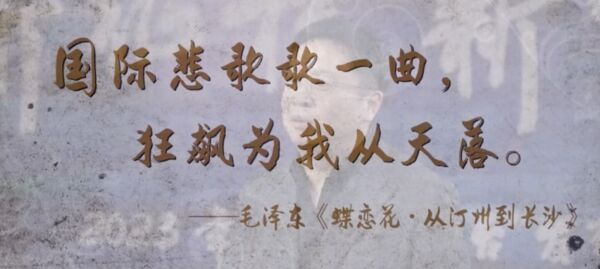 国际悲歌歌一曲，
狂飙为我从天落。
——毛泽东《蝶恋花·从汀州到长沙》